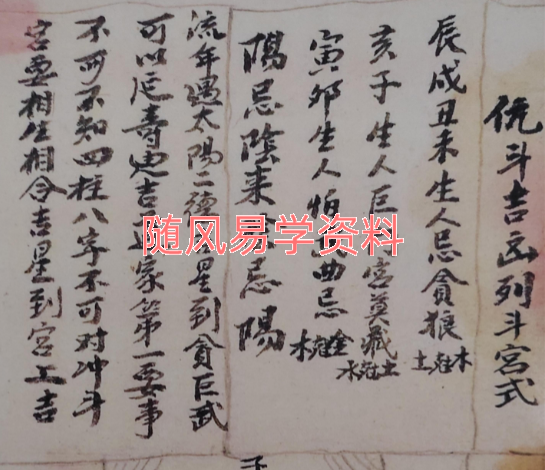 侊斗吉凶列斗宫式
辰戌丑未生人忌貪狼
木尅土
亥子生人巨門宫莫藏
土尅水
寅卯生人怕武曲忌
金尅木
陽忌陰来陰忌陽
流年遇太陽二德星到貪巨武
可以延壽迪吉造家第一要事
不可不知四柱八字不可对冲斗
宫要相生相合吉星到宫上吉
子
随风易学资料